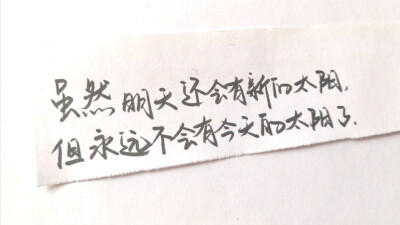 虽然明天还会有新的太阳，
但永远不会有今天的太阳了.